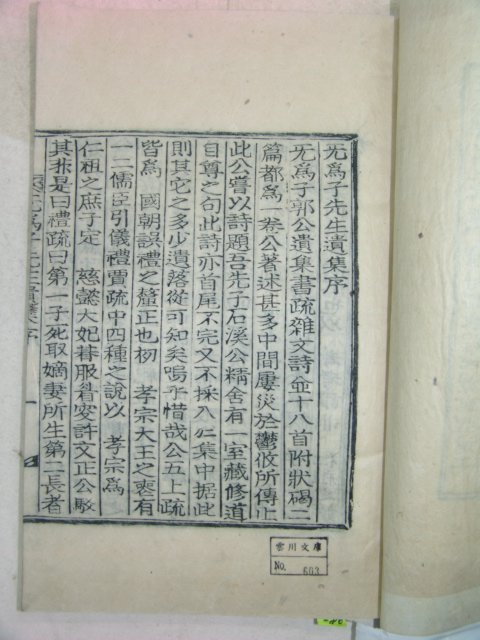 无爲子先生遺集序
无爲子郭公遺集書疏雜文詩並十八首附狀碣二
篇都爲 卷公著述甚多中間屢災於鬱攸所傳止
此公嘗以詩題吾先子石溪公精舍有一室藏修道
自尊之句此詩亦首尾不完又不採入於集中據此
則其它之多少遺落從可知矣嗚乎惜哉公五上疏
皆爲 國朝誤禮之釐正也初 孝宗大王之喪有
一二儒臣引儀禮賈疏中四種之說以 孝宗爲
仁祖之庶子定 慈懿大妃朞服眉叟許文正公駁
其非是曰禮疏曰第一子死取嫡妻所生第二長者
无爲子先生遺集序 一
雲川文庫
No. 603